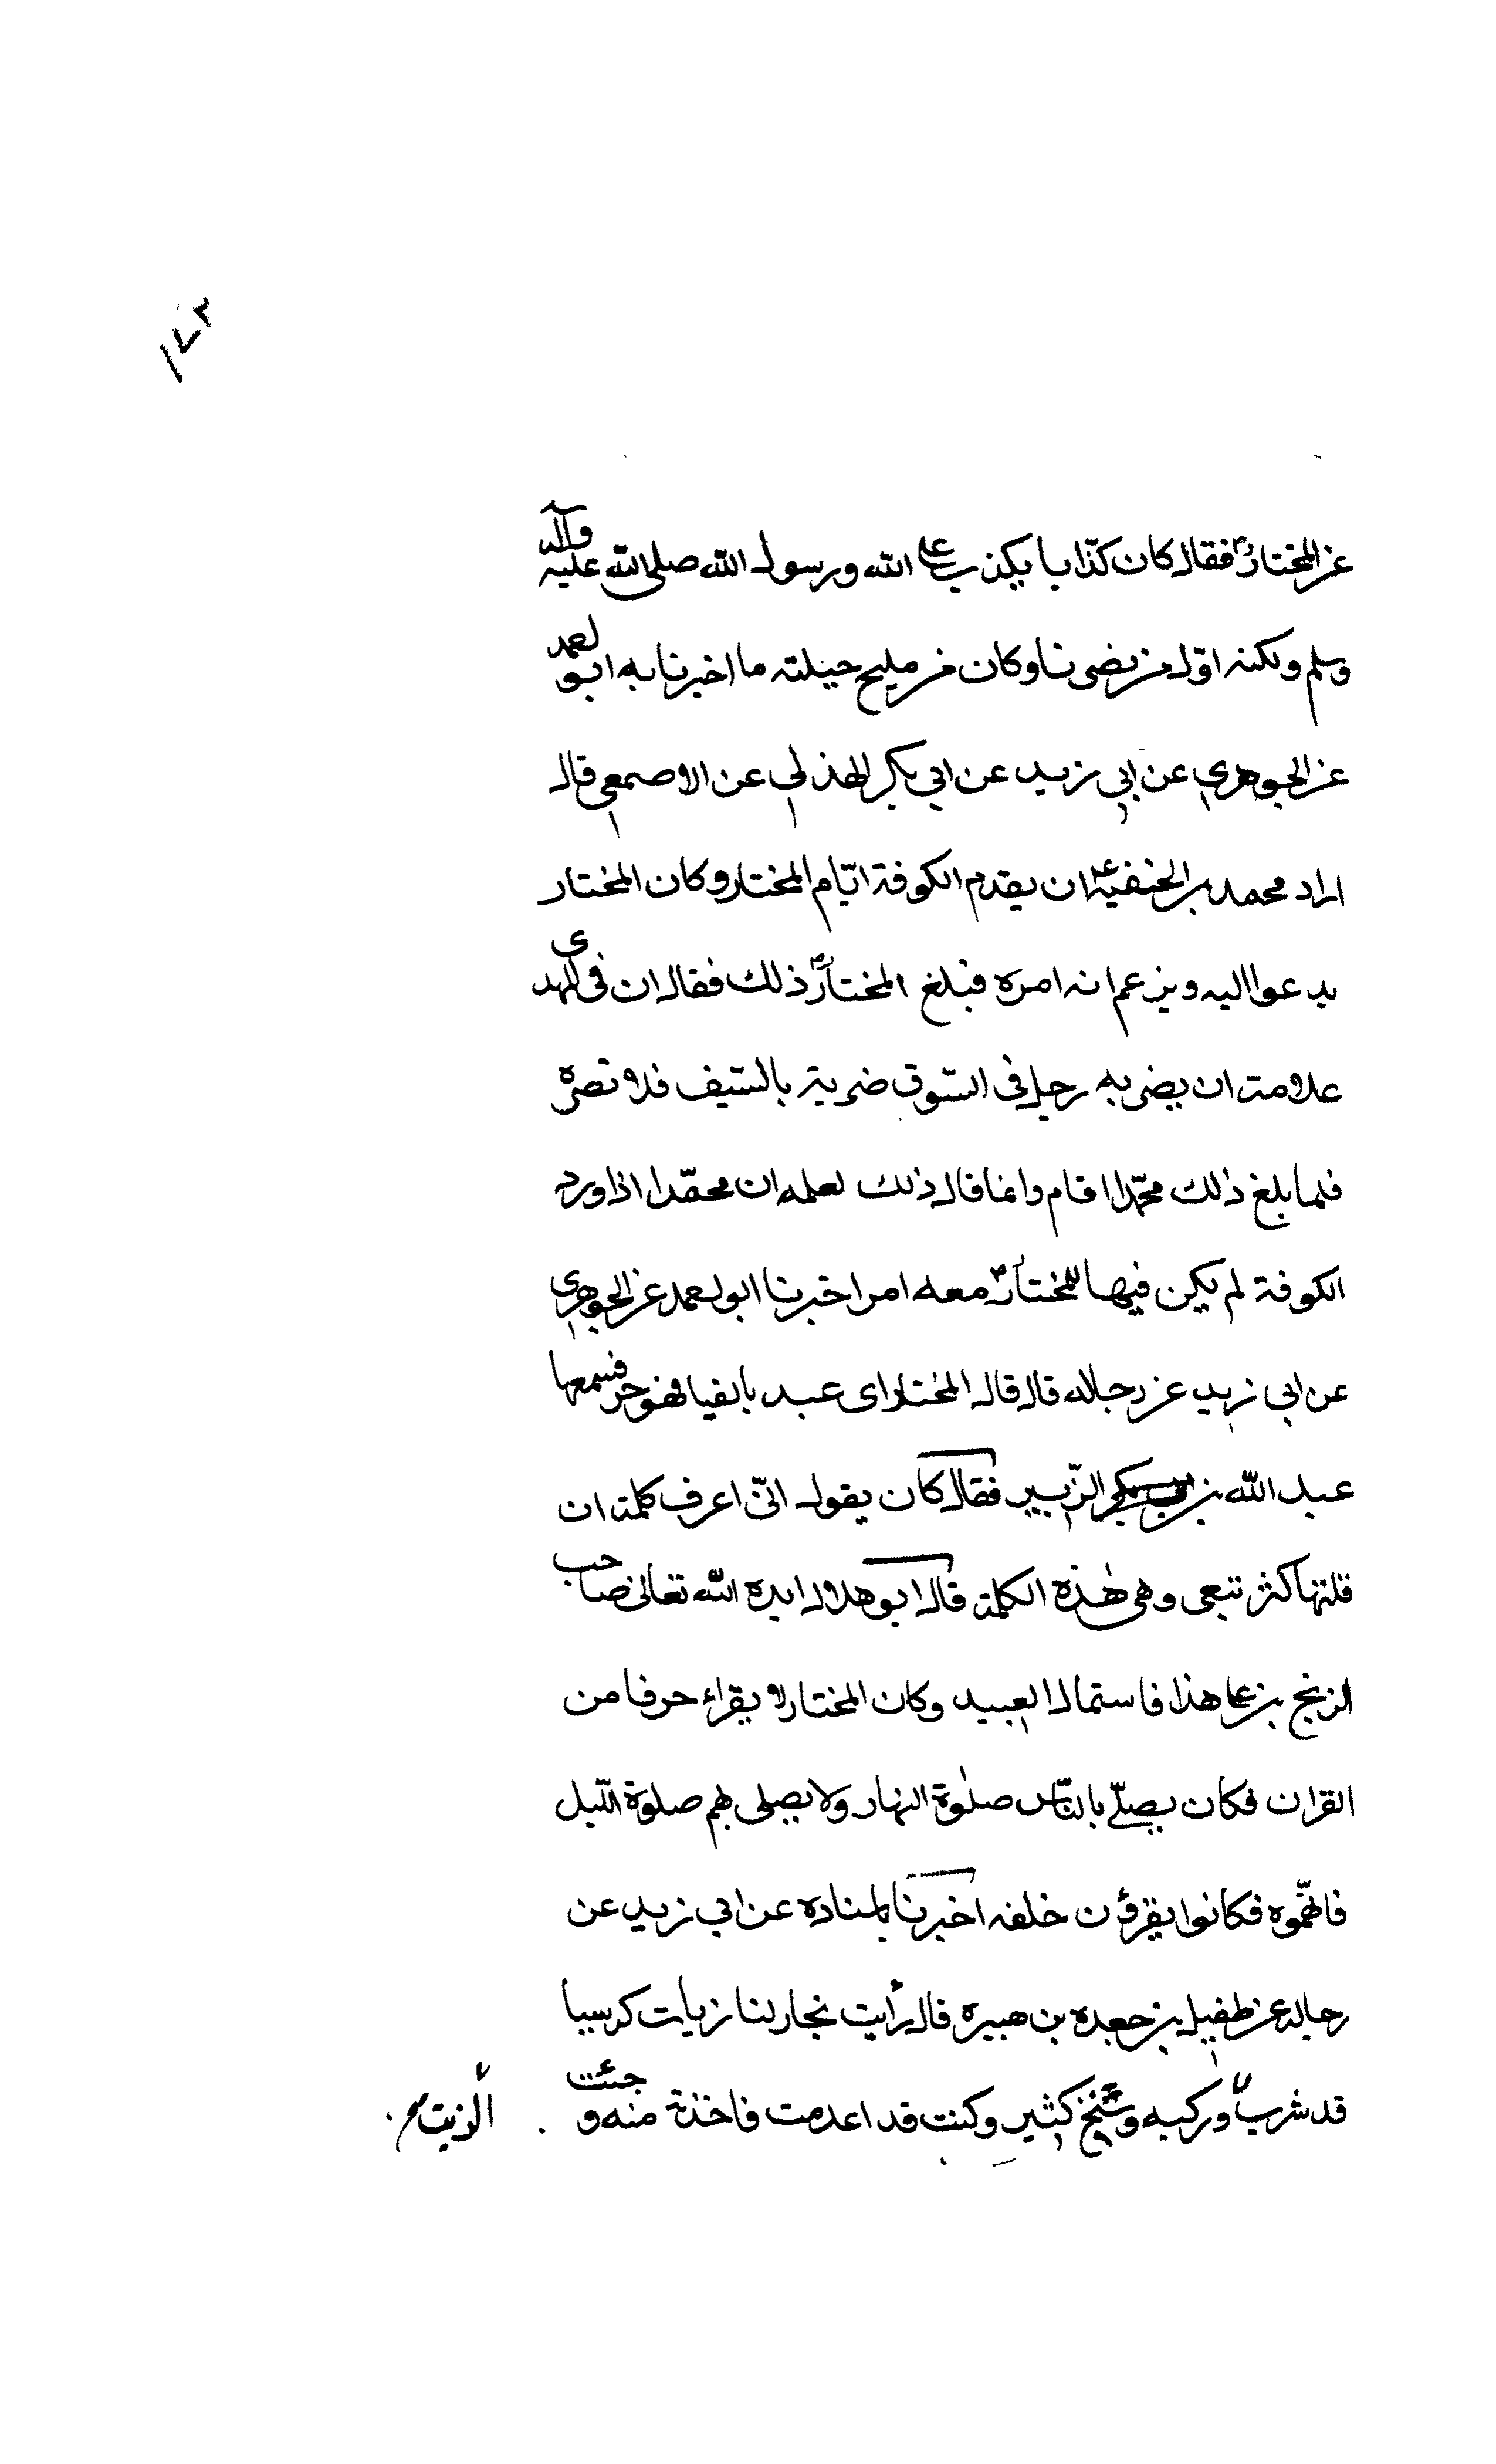 ١٧٣
عن المختار فقال كان كذابا يكذب على الله ورسول الله صلى الله عليه وآله
وسلم ولكنه اوّل من نضى نا وكان من مليح حيلته ما اخبرنا به ابو احمد
عن الجوهري عن ابي زيد عن ابي بكر الهذلي عن الاصمعي قال
اراد محمد بن الحنفية ان يقدم الكوفة ايّام المختار وكان المختار
يدعوا اليه ويزعم انه امره فبلغ المختار ذلك فقال ان في المهدى
علامة ان يضربه رجل في السّوق ضربة بالسّيف فلا تضره
فلما بلغ ذلك محمّدا اقام وانما قال ذلك لعلمه ان محمّدا اذا ورد
الكوفة لم يكن فيها للمختار معه امر اخبرنا ابو احمد عن الجوهري
عن ابي زيد عن رجاله قال قال المختار اى عبد بالفيا فهو حر فسمعها
عبد الله بن الزّبير فقال كان يقول انّى اعرف كلمة ان
قلتها كثر تبعى وهى هٰذه الكلمة قال ابو هلال ايده الله تعالى صاحب
الزنج بنى على هذا فاستمال العبيد وكان المختار لا يقراء حرفا من
القران فكان يصلّى بالنّاس صلوٰة النهار ولا يصلى بهم صلوة اللّيل
فاتّهموه فكانوا يقرؤن خلفه اخبرنا بلسناده عن ابي زيد عن
رجاله عن طفيل بن جعدة بن هبيرة قال رأيت نجار لنا زيات كرسيا
قد شرب وركبه وسخ كثير وكنت قد اعدمت فاخذته منه و جئت
الزيت